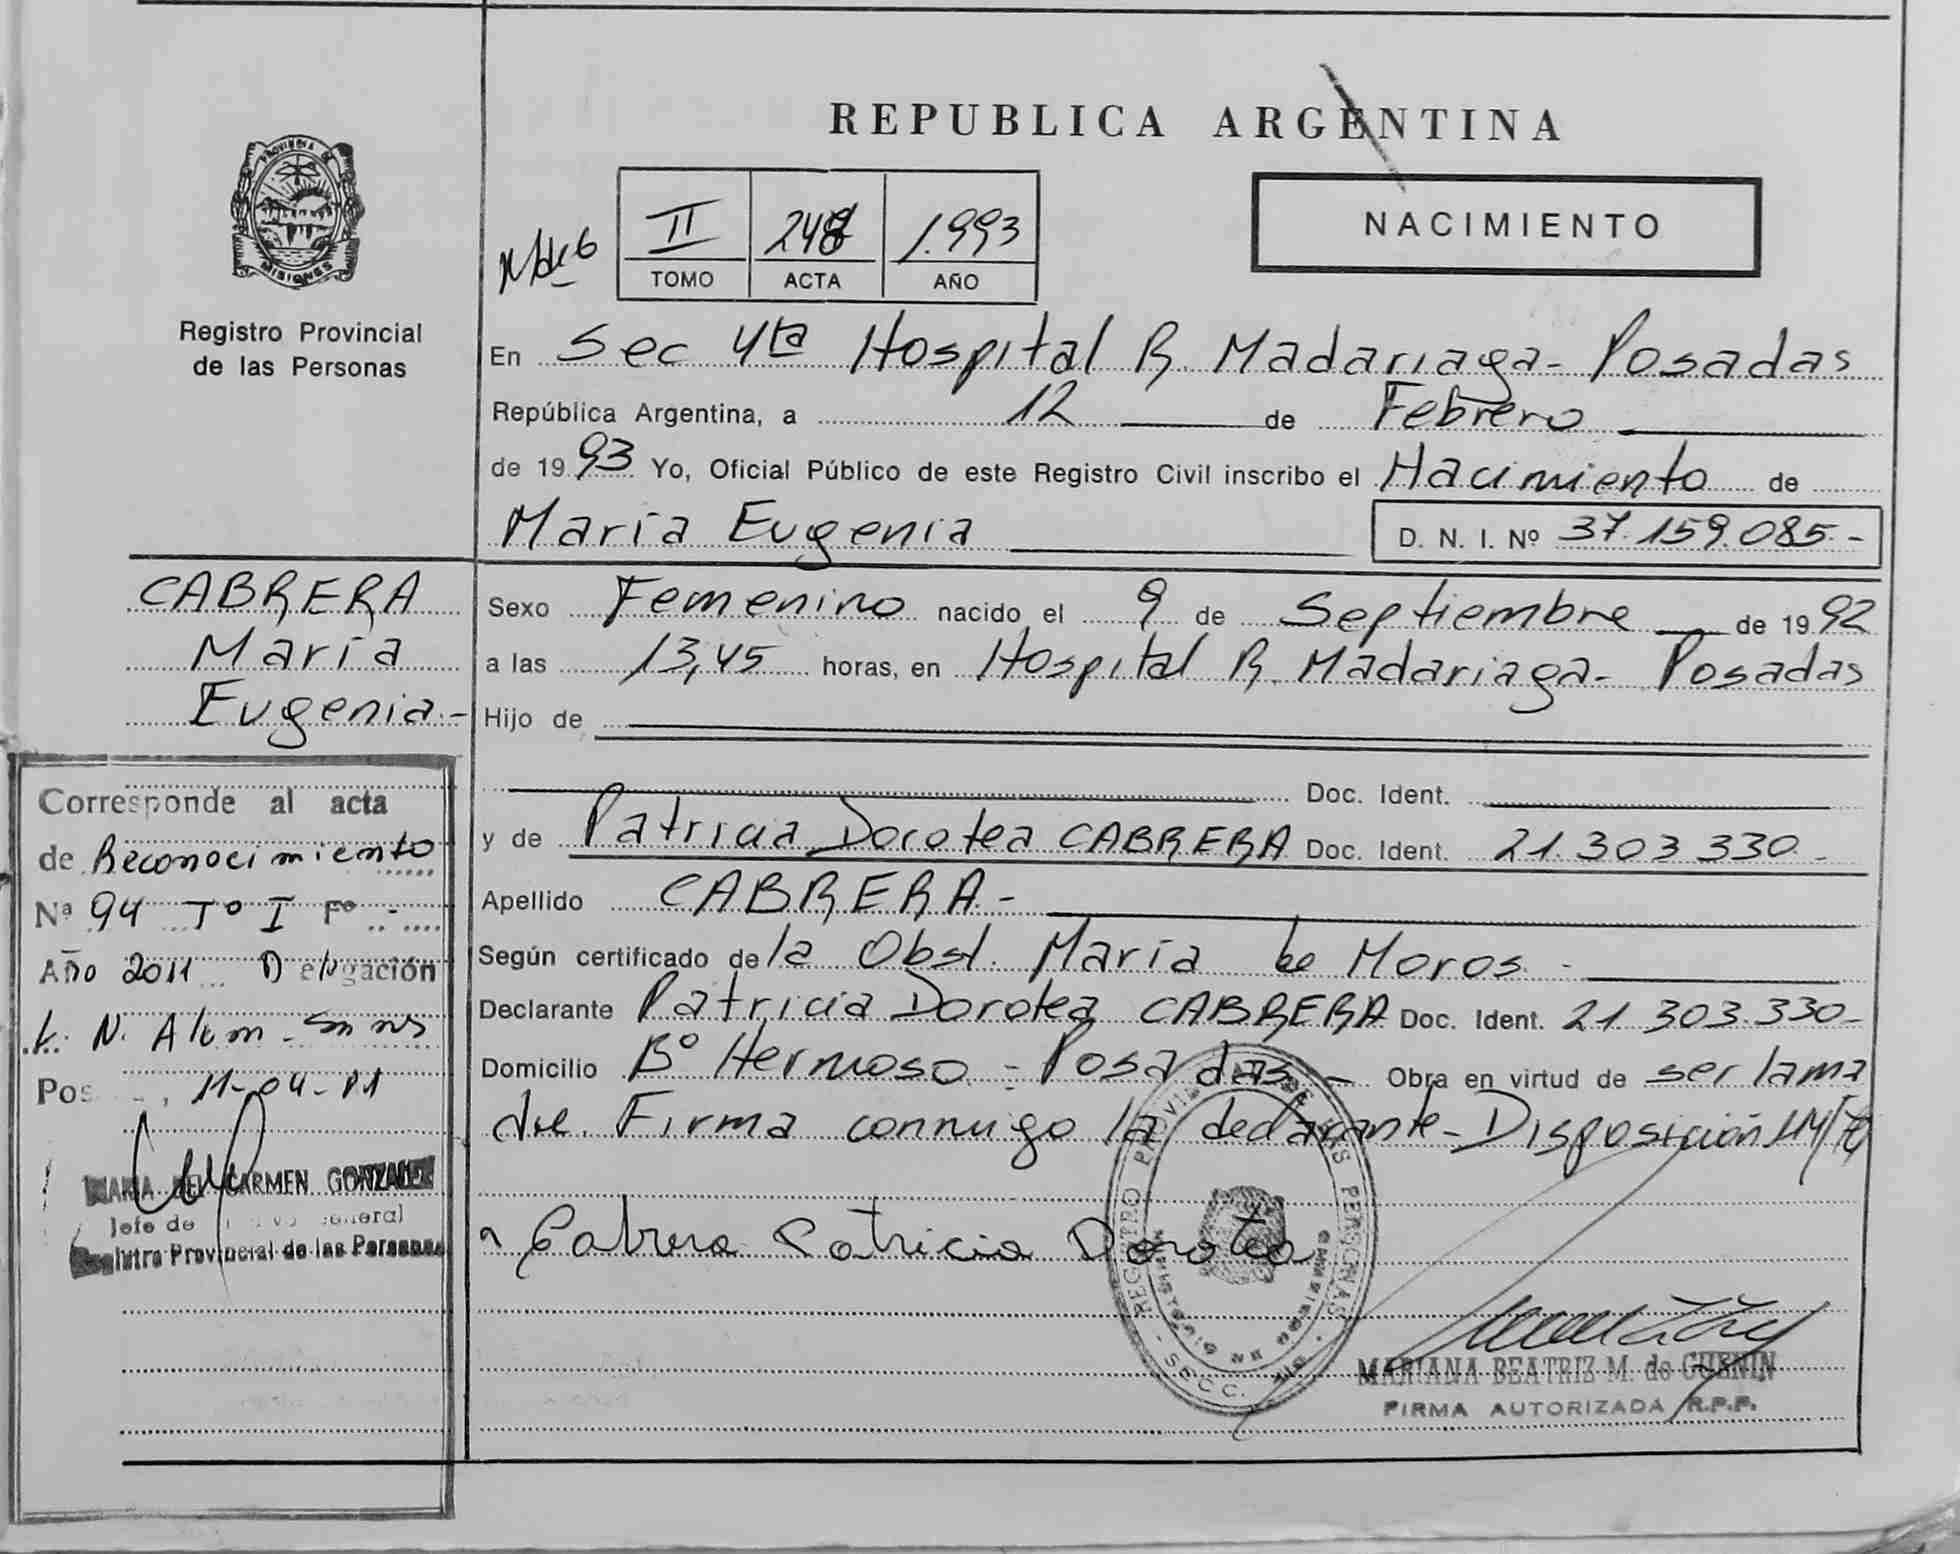 REPUBLICA ARGENTINA
NACIMIENTO
PROVINCIA DE
MISIONES
Registro Provincial
de las Personas
II 248 1.993
TOMO ACTA AÑO
En Sec 4ta Hospital R. Madariaga - Posadas
República Argentina, a 12 de Febrero
de 1993 Yo, Oficial Público de este Registro Civil inscribo el Nacimiento de
María Eugenia D. N. I. Nº 37.159.085.-
CABRERA
María
Eugenia.-
Sexo Femenino nacido el 9 de Septiembre de 1992
a las 13,45 horas, en Hospital R. Madariaga - Posadas
Hijo de
Doc. Ident.
y de Patricia Dorotea CABRERA Doc. Ident. 21.303.330.-
Apellido CABRERA.-
Según certificado de la Obst. María de Moros.-
Declarante Patricia Dorotea CABRERA Doc. Ident. 21.303.330.-
Domicilio Bº Hermoso - Posadas.- Obra en virtud de ser la ma
dre. Firma conmigo la declarante - Disposición
Cabrera Patricia Dorotea
REGISTRO PROVINCIAL DE LAS PERSONAS
MINISTERIO DE GOBIERNO
SECC.
MARIANA BEATRIZ M. de GUENIN
FIRMA AUTORIZADA R.P.P.
Corresponde al acta
de Reconocimiento
Nª 94 Tº I Fº -
Año 2011 Delegación
L. N. Alem - Sn ns
Pos , 11-04-11
MARIA DEL CARMEN GONZALEZ
Jefe de General
Registro Provincial de las Personas